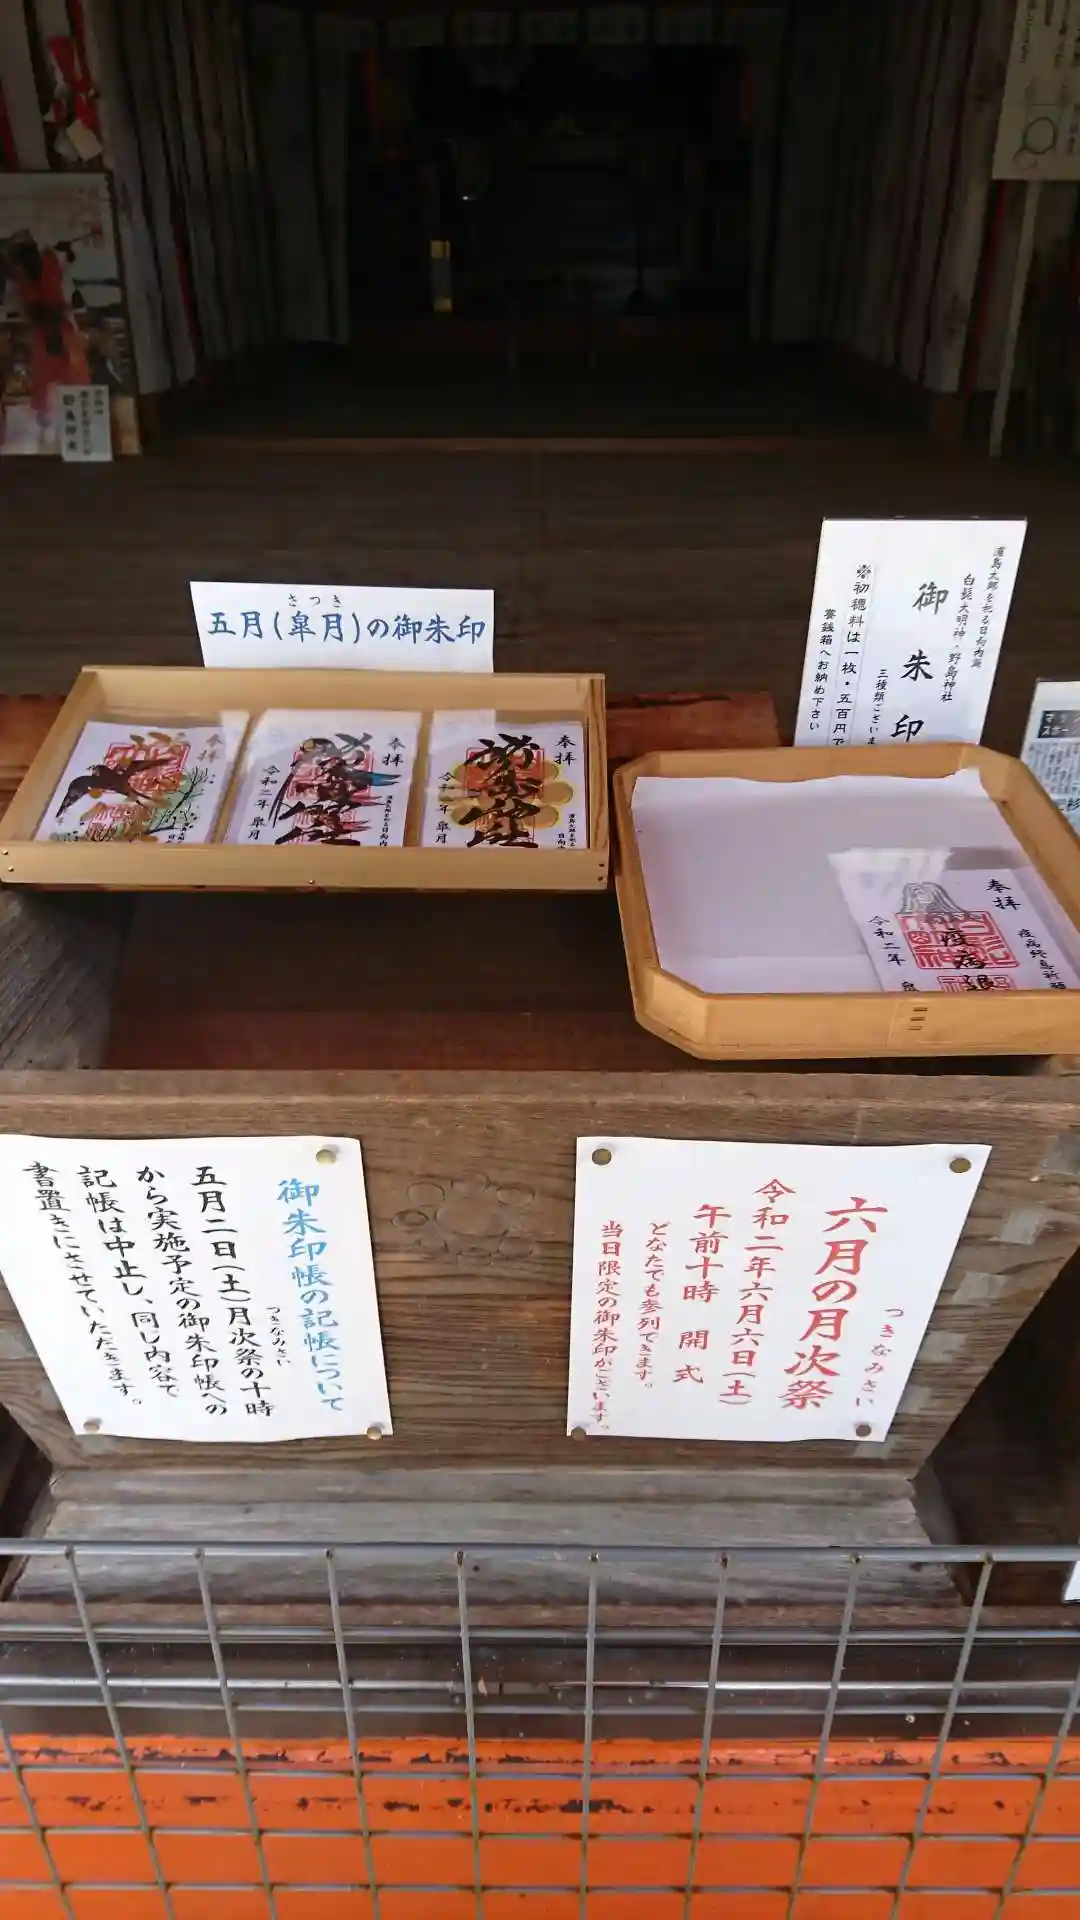 五月(皐月)の御朱印
さつき
浦島太郎を祀る日向内海
白髭大明神・野島神社
御朱印
三種類ございま
※初穂料は一枚・五百円で
賽銭箱へお納め下さい
奉拝
奉拝
令和二年 皐月
奉拝
皐月
奉拝
疫病終息祈願
疫病退
令和二年
六月の月次祭
つきなみさい
令和二年六月六日(土)
午前十時 開式
どなたでも参列できます。
当日限定の御朱印がございます。
御朱印帳の記帳について
五月二日(土)月次祭の十時
つきなみさい
から実施予定の御朱印帳への
記帳は中止し、同じ内容で
書置きにさせていただきます。